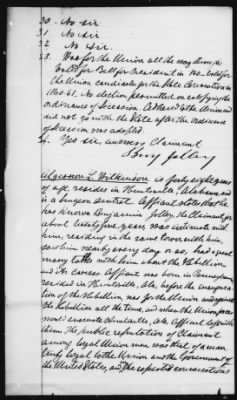 30. No sir
31 No sir
32. No sir.
33. Was for the Union all the way through
Voted for Bell for President in 1860. Voted for
the Union candidate for the State Convention in
1860-61. No election permitted on ratifying the
ordinance of Secession. Adhered to the Union and
did not go with the State after the ordinance
of Secession was adopted.
34. Yes sir, answers Claimant
Benj Jolley
Algernon L. Wilkinson is forty eight years
of age, resides in Huntsville, Alabama, and
is a Surgeon dentist. Affiant states that he
has known Benjamin Jolley, the Claimant, for
about twenty five years, was intimate with
him, residing in the same town with him,
saw him nearly every day or so, had great
many talks with him about the Rebellion
and its causes. Affiant was born in Pennsylvania,
resided in Huntsville, Ala, before the inaugura-
tion of the Rebellion, was for the Union and against
the Rebellion all the time, and when the Union forces
evacuated Huntsville, Ala, Affiant left with
them. The public reputation of Claimant
among loyal Union men was that of a man
truly loyal to the Union and the Government of
the United States, and the repeated conversations